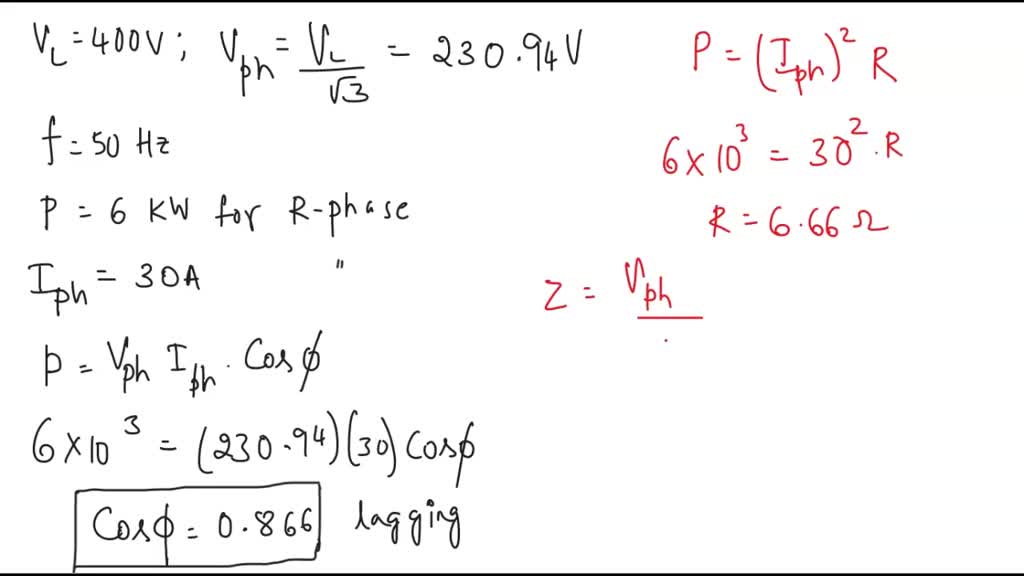 V_L = 400V ; V_ph = V_L / √3 = 230.94 V
f = 50 Hz
P = 6 KW for R-phase
I_ph = 30A "
P = V_ph I_ph . Cos ϕ
6 × 10^3 = (230.94) (30) Cos ϕ
Cos ϕ = 0.866 lagging
P = (I_ph)^2 R
6 × 10^3 = 30^2 . R
R = 6.66 Ω
Z = V_ph